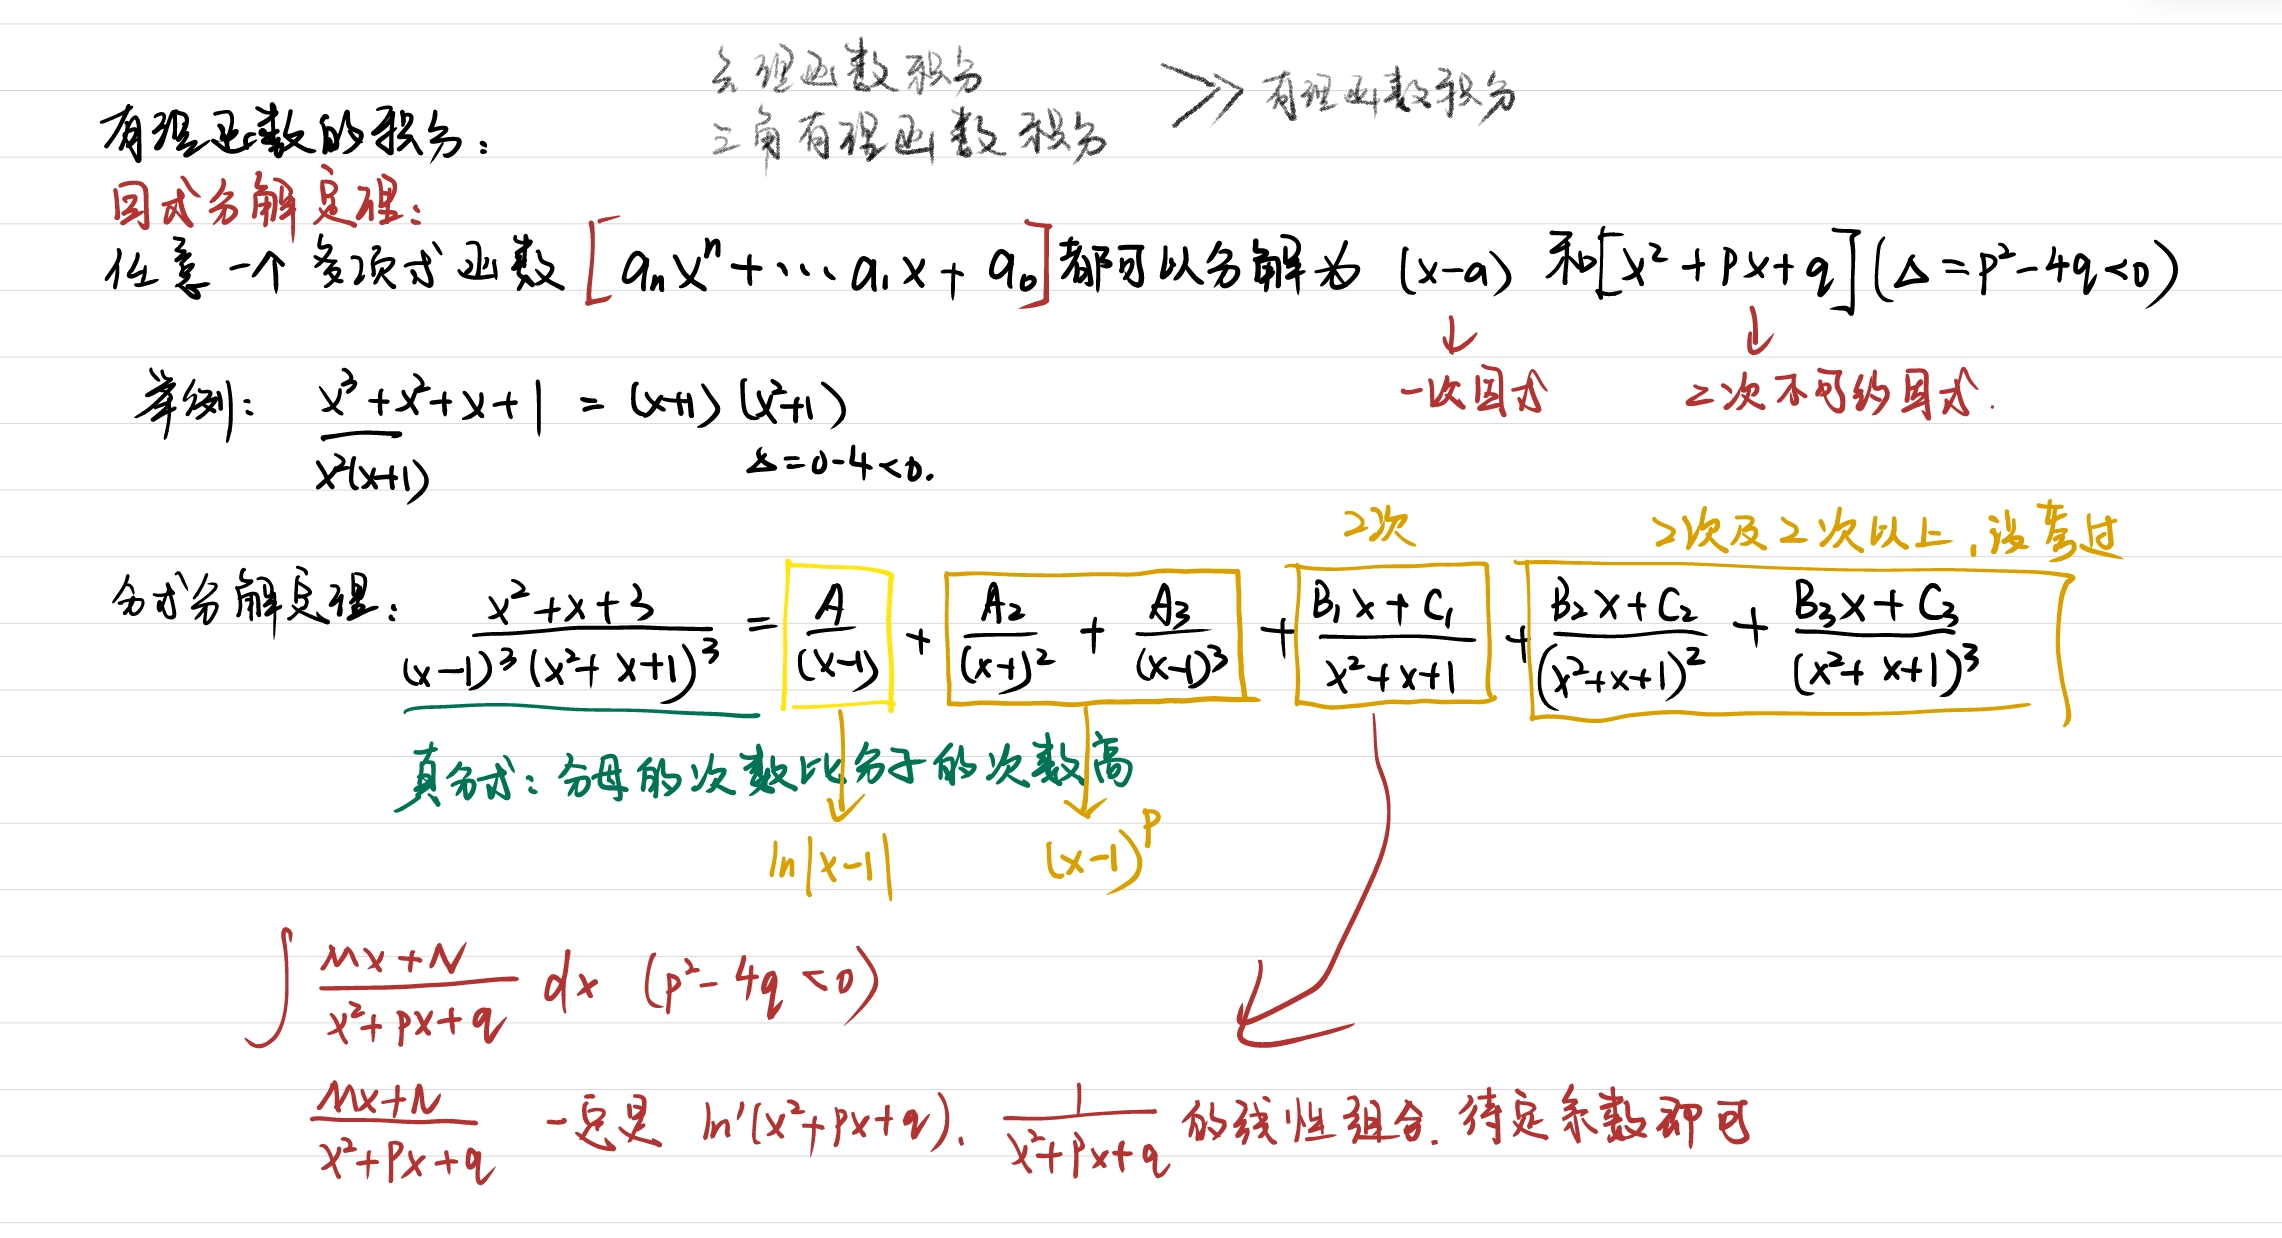 无理函数积分
三角有理函数积分 >> 有理函数积分
有理函数的积分：
因式分解定理：
任意一个多项式函数 [aₙxⁿ+⋯a₁x+a₀] 都可以分解为 (x-a) 和 [x²+px+q] (Δ=p²-4q<0)
↓ ↓
一次因式 2次不可约因式.
举例： x³+x²+x+1 = (x+1)(x²+1)
x²(x+1) Δ=0-4<0.
2次 2次及2次以上，没考过
分式分解定理： (x²+x+3)/((x-1)³(x²+x+1)³) = A/(x-1) + A₂/(x-1)² + A₃/(x-1)³ + (B₁x+C₁)/(x²+x+1) + (B₂x+C₂)/(x²+x+1)² + (B₃x+C₃)/(x²+x+1)³
真分式：分母的次数比分子的次数高
ln|x-1| (x-1)^p
∫ (Mx+N)/(x²+px+q) dx (p²-4q<0)
(Mx+N)/(x²+px+q) 一定是 ln'(x²+px+q). 1/(x²+px+q) 的线性组合. 待定系数即可